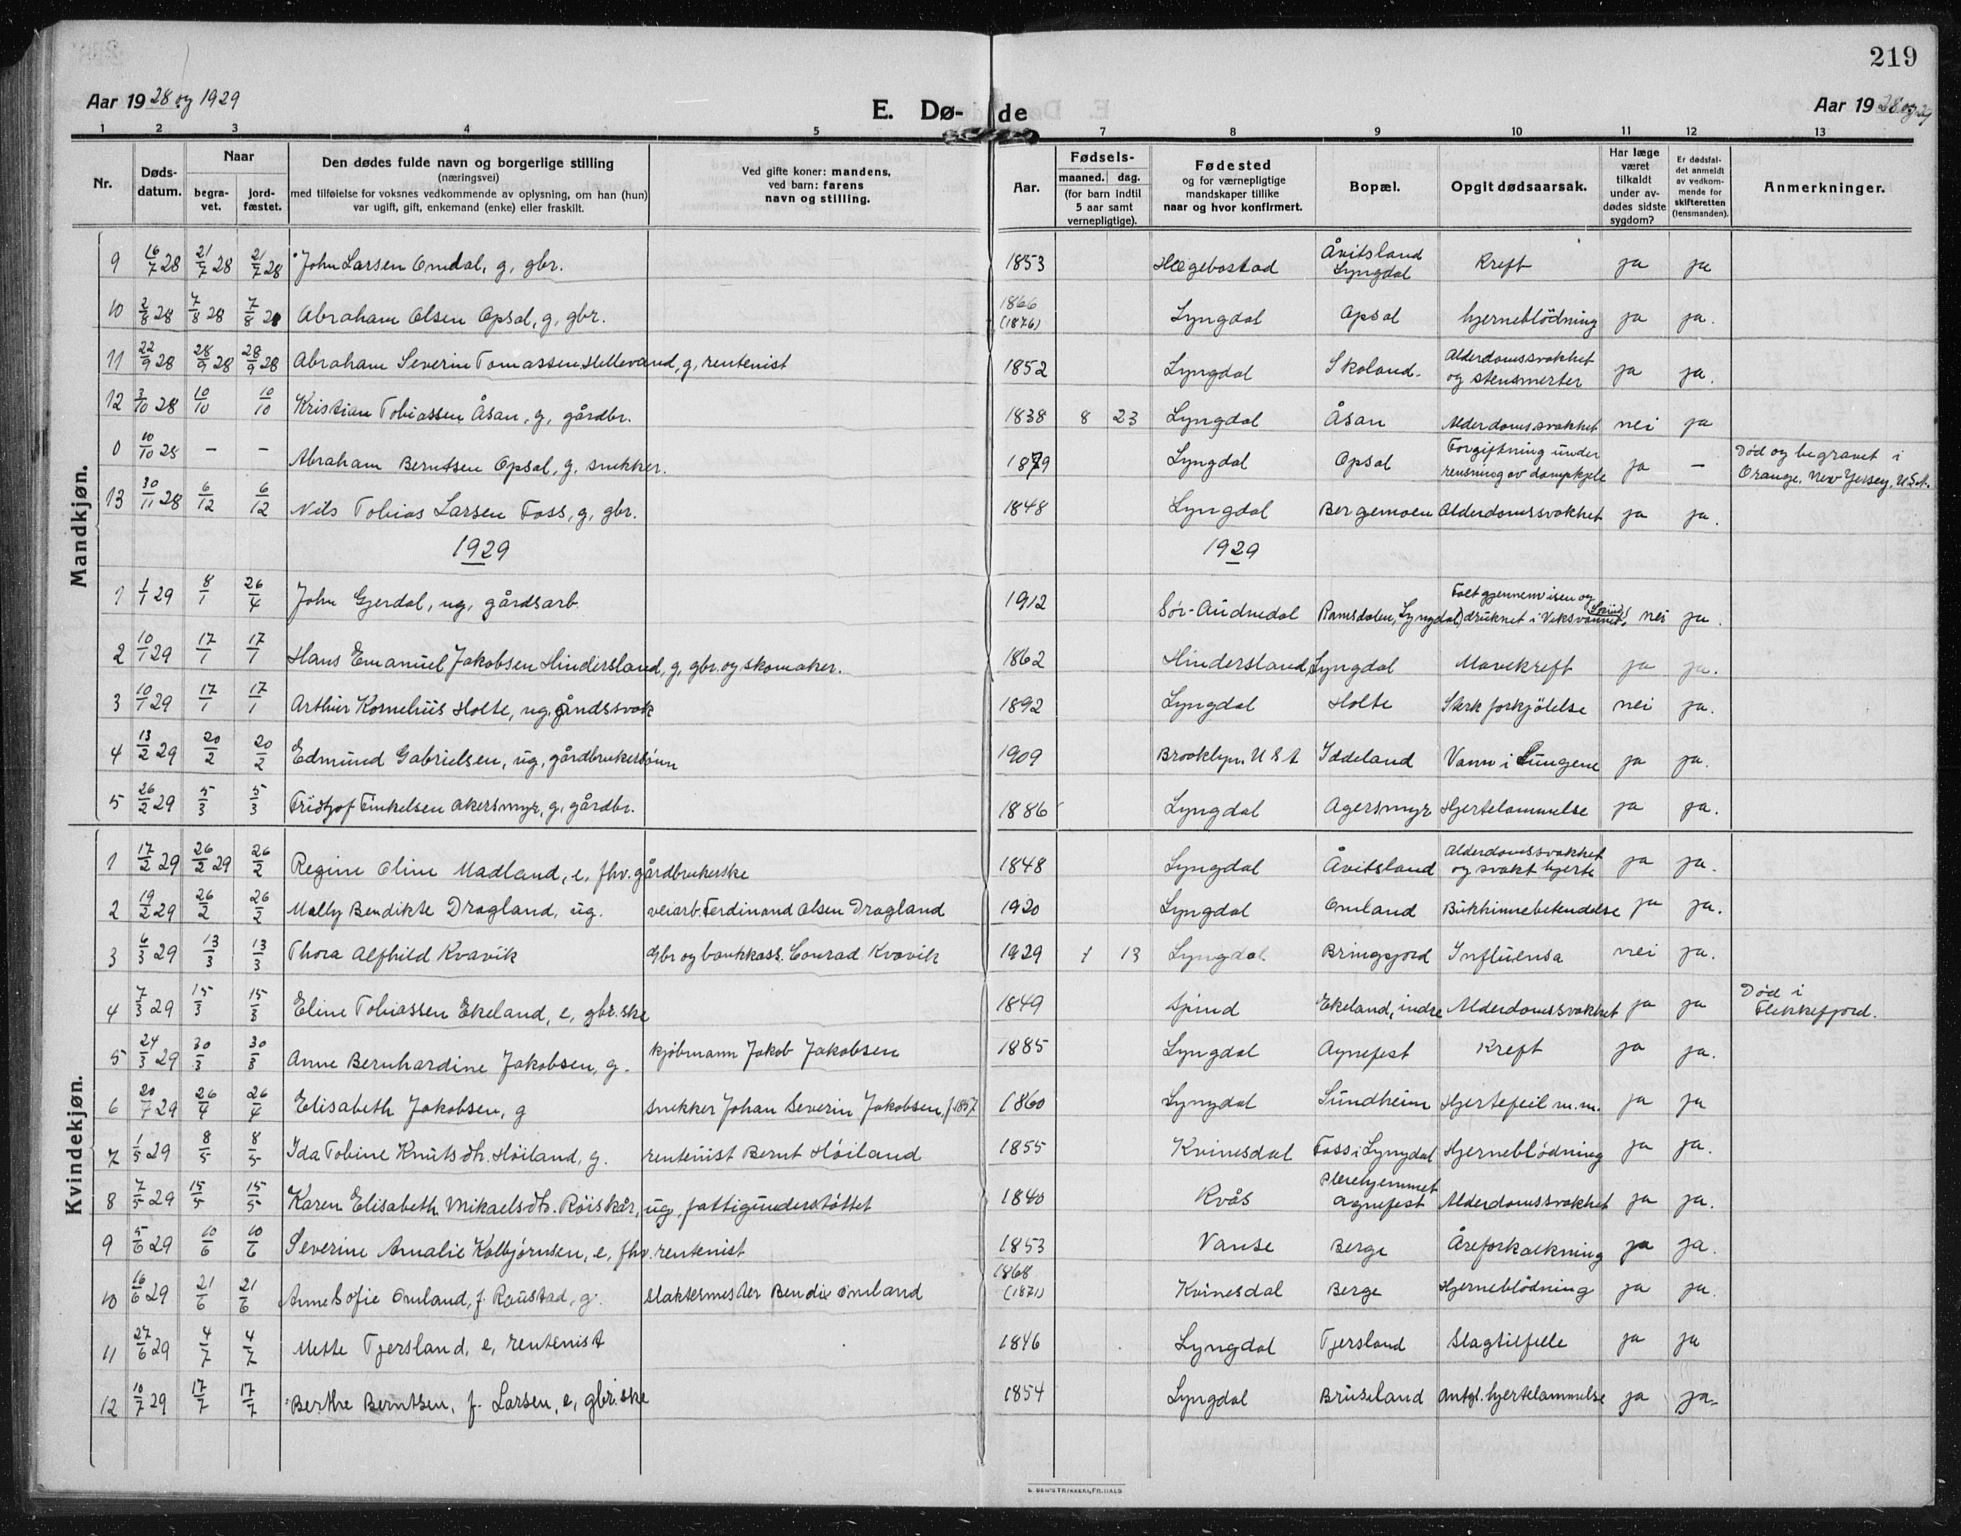 219
Aar 1928 og 1929 E. Dø- de Aar 1928 og 29
1 2 3 4 5 7 8 9 10 11 12 13
Nr.
Døds-
datum.
Naar
begra-
vet.
jord-
fæstet.
Den dødes fulde navn og borgerlige stilling
(næringsvei)
med tilføielse for voksnes vedkommende av oplysning, om han (hun)
var ugift, gift, enkemand (enke) eller fraskilt.
Ved gifte koner: mandens,
ved barn: farens
navn og stilling.
Aar.
Fødsels-
maaned. dag.
(for barn indtil
5 aar samt
vernepligtige).
Fødested
og for værnepligtige
mandskaper tillike
naar og hvor konfirmert.
Bopæl.
Opgit dødsaarsak.
Har læge
været
tilkaldt
under av-
dødes sidste
sygdom?
Er dødsfal-
det anmeldt
av vedkom-
mende for
skifteretten
(lensmanden).
Anmerkninger.
Mandkjøn.
9 16/7 28 21/7 28 21/7 28 John Larsen Omdal, g, gbr. 1853 Hægebostad Åvitsland Lyngdal Kreft ja ja
10 2/8 28 7/8 28 7/8 28 Abraham Olsen Opsal, g, gbr. 1866 (1876) Lyngdal Opsal hjerneblödning ja ja.
11 22/9 28 28/9 28 28/9 28 Abraham Severin Tomassen Hellevand, g, rentenist 1852 Lyngdal Skoland. Alderdomssvakhet og stensmerter ja ja.
12 3/10 28 10/10 10/10 Kristian Tobiassen Åsan, g, gårdbr. 1838 8 23 Lyngdal Åsan Alderdomssvakhet nei ja
0 10/10 28 – – Abraham Berntsen Opsal, g, snekker. 1879 Lyngdal Opsal Forgiftning under rensning av dampkjele ja – Død og begravet i Orange, New Yersey, U.S.A.
13 30/11 28 6/12 6/12 Nils Tobias Larsen Foss, g, gbr. 1848 Lyngdal Bergemoen Alderdomssvakhet ja ja.
1929 1929
1 1/1 29 8/1 26/4 John Gjerdal, ug, gårdsarb. 1912 Sør-Audnedal Ramsdalen, Lyngdal Falt gjennem isen og druknet i Viksvannet, Spind! nei ja.
2 10/1 29 17/1 17/1 Hans Emanuel Jakobsen Hindersland, g, gbr. og skomaker. 1862 Hindersland, Lyngdal Mavekreft ja ja.
3 10/1 29 17/1 17/1 Arthur Kornelius Holte, ug, åndssvak 1892 Lyngdal Holte Sterk forkjölelse nei ja.
4 13/2 29 20/2 20/2 Edmund Gabrielsen, ug, gårdbrukersønn 1909 Brooklyn, U S A Iddeland Vann i Lungene ja ja.
5 26/2 29 5/3 5/3 Fridtjof Finkelsen Akersmyr, g, gårdbr. 1886 Lyngdal Agersmyr Hjertelammelse ja ja.
Kvindekjøn.
1 17/2 29 26/2 29 26/2 Regine Oline Madland, e, fhv. gårdbrukerske 1848 Lyngdal Åvitsland Alderdomssvakhet og svakt hjerte ja ja.
2 19/2 29 26/2 26/2 Molly Bendikte Dragland, ug. veiarb. Ferdinand Olsen Dragland 1920 Lyngdal Omland Bukhinnebetendelse ja ja.
3 6/3 29 13/3 13/3 Thora Alfhild Kvavik Gbr og bankkass. Conrad Kvavik 1929 1 13 Lyngdal Bringsjord Influensa nei ja.
4 7/3 29 15/3 15/3 Eline Tobiassen Ekeland, e, gbr.ske 1849 Spind Ekeland, indre Alderdomssvakhet ja ja Død i Flekkefjord.
5 24/3 29 30/3 30/3 Anne Bernhardine Jakobsen, g. kjöbmann Jakob Jakobsen 1885 Lyngdal Agnefest Kreft ja ja.
6 20/7 29 26/4 26/4 Elisabeth Jakobsen, g snekker Johan Severin Jakobsen, f 1857 1860 Lyngdal Sundheim Hjertefeil m.m. ja ja
7 1/5 29 8/5 8/5 Ida Tobine Knutsdh. Höiland, g. rentenist Bernt Höiland 1855 Kvinesdal Foss i Lyngdal Hjerneblödning ja ja.
8 7/5 29 15/5 15/5 Karen Elisabeth Mikaelsdh. Röiskår, ug, fattigunderstöttet 1840 Kvås Pleiehjemmet Agnefest Alderdomssvakhet ja ja.
9 5/6 29 10/6 10/6 Severine Amalie Kolbjørnsen, e, fhv. rentenist 1853 Vanse Berge Åreforkalkning ja ja.
10 16/6 29 21/6 21/6 Anne Sofie Omland, f. Raustad, g. slaktermester Bendix Omland 1868 (1871) Kvinesdal Berge Hjerneblödning ja ja.
11 27/6 29 4/7 4/7 Mette Tjersland, e, rentenist 1846 Lyngdal Tjersland Slagtilfelle ja ja
12 10/7 29 17/7 17/7 Berthe Berntsen, f. Larsen, e, gbr.ske 1854 Lyngdal Bruseland Antgl. hjertelammelse ja ja.